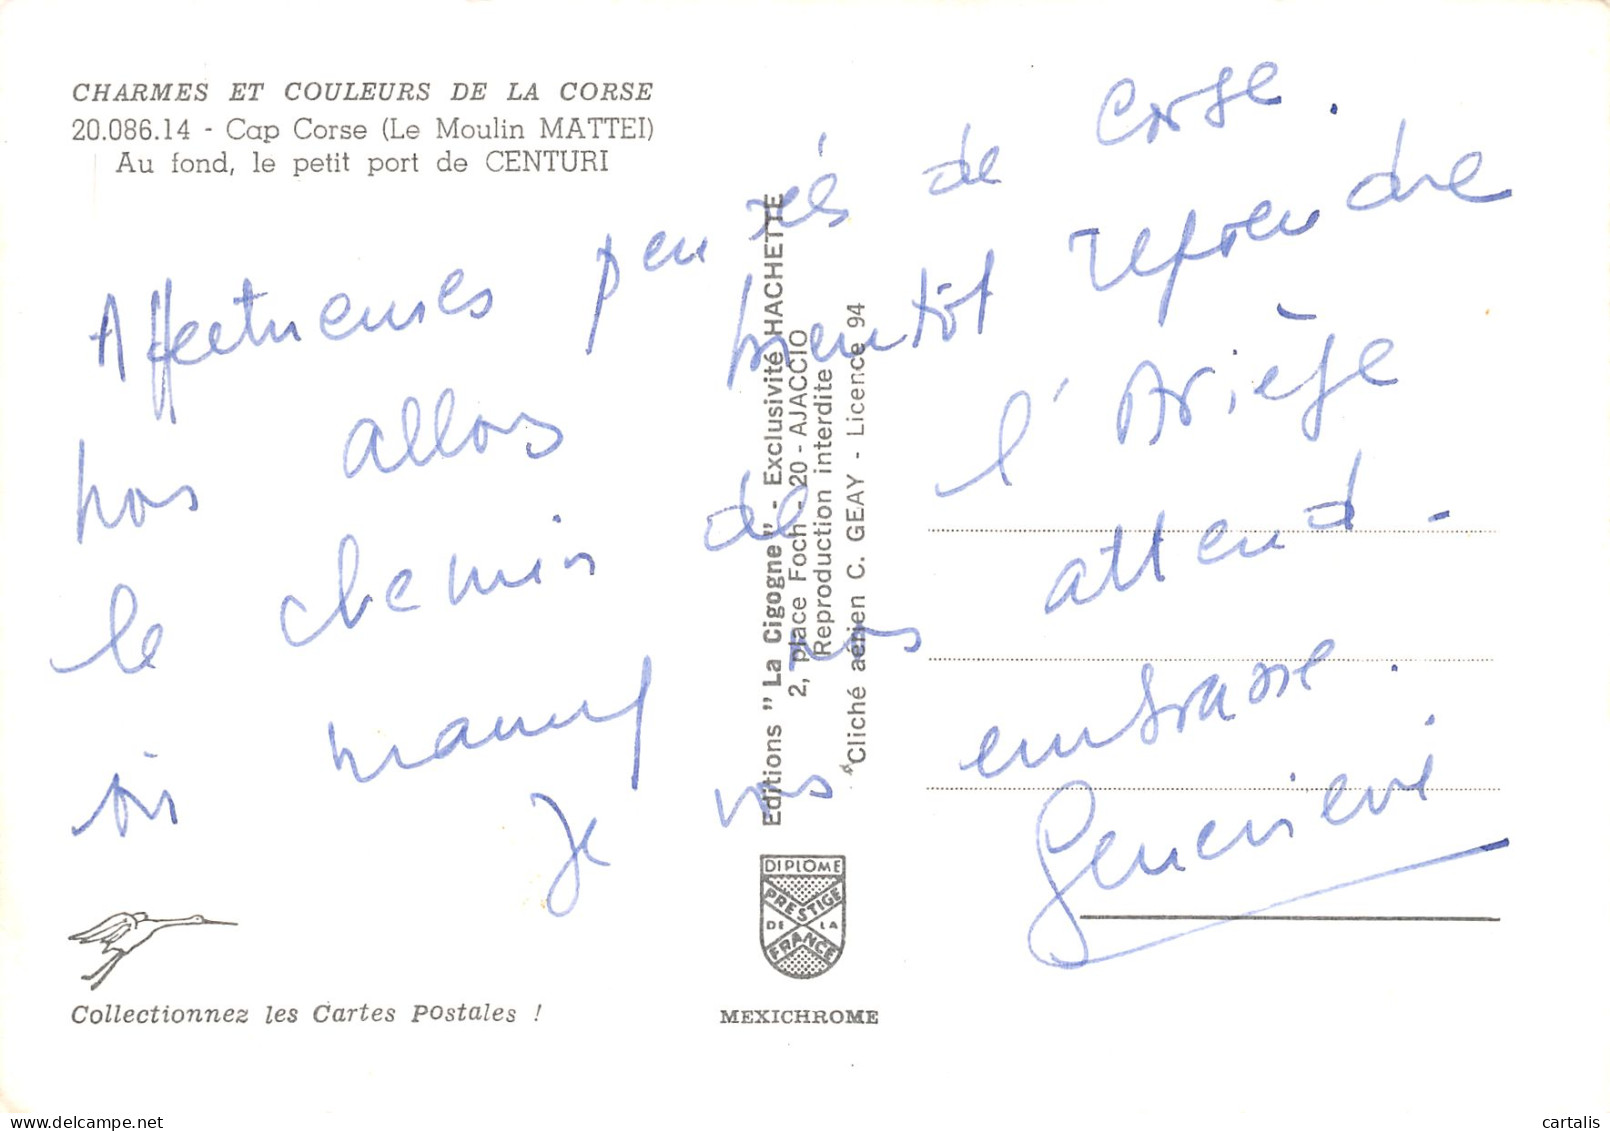 CHARMES ET COULEURS DE LA CORSE
20.086.14 - Cap Corse (Le Moulin MATTEI)
Au fond, le petit port de CENTURI
Affectueuses pensées de Corse.
nos allons bientôt reprendre
le chemin de l'Ariège
où nos attend.
Je vos embrasse.
Geneviève
Editions "La Cigogne" - Exclusivité HACHETTE
2, place Foch - 20 - AJACCIO
Reproduction interdite
Cliché aérien C. GEAY - Licence 94
DIPLOME
PRESTIGE
DE LA
FRANCE
MEXICHROME
Collectionnez les Cartes Postales !
cartalis